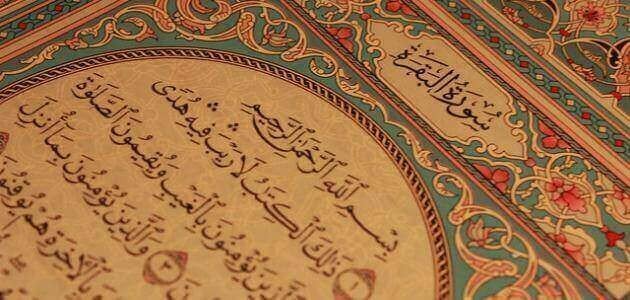 سُورَةُ الْبَقَرَةِ
بِسْمِ ٱللَّهِ ٱلرَّحْمَٰنِ ٱلرَّحِيمِ
١ ذَٰلِكَ ٱلْكِتَٰبُ لَا رَيْبَ فِيهِ هُدًى
ٱلَّذِينَ يُؤْمِنُونَ بِٱلْغَيْبِ وَيُقِيمُونَ ٱلصَّلَوٰةَ
٣ وَٱلَّذِينَ يُؤْمِنُونَ بِمَآ أُنزِلَ
وَبِٱلْءَاخِرَةِ هُمْ